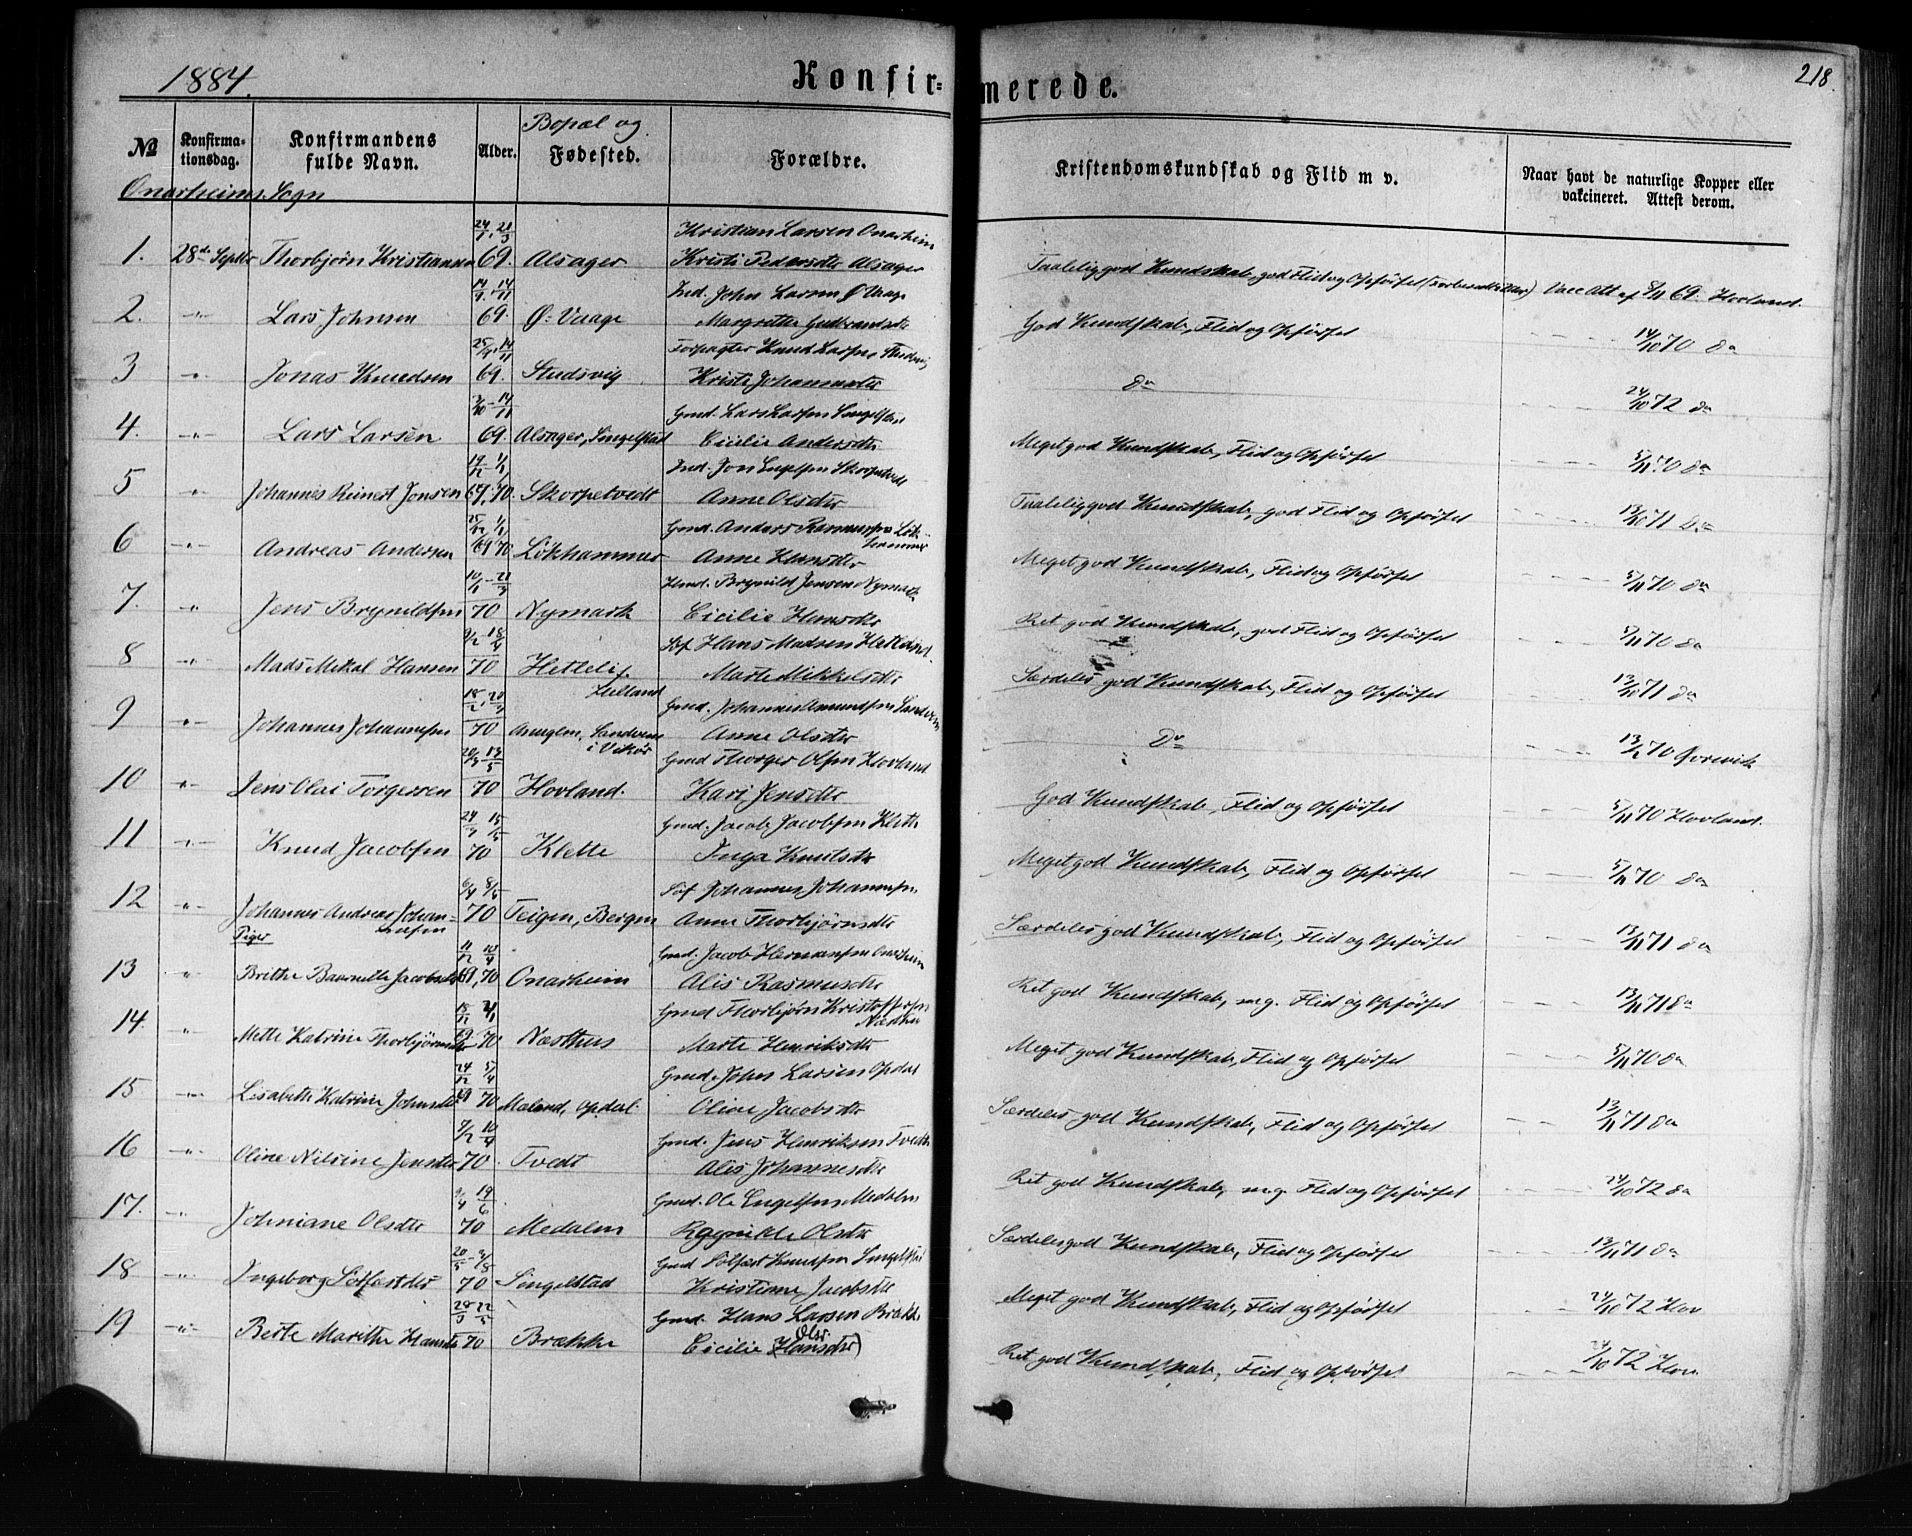 1884.
Konfir= merede.
218.
№
Konfirma-
tionsdag.
Konfirmandens
fulde Navn.
Alder.
Bopæl og
Fødested.
Forældre.
Kristendomskundskab og Flid m v.
Naar havt de naturlige Kopper eller
vakcineret. Attest derom.
Onarheims Sogn
Kristian Larsen Onarheim
1. 28de Septbr Thorbjørn Kristiansen 69. Alsager Kristi Pedersdtr Alsager
Taalelig god Kundskab, god Flid og Opførsel Vacc Att af 8/11 69. Hovland.
Ind. John Larsen Ø Vaage
2. " Lars Johnsen 69. Ø: Vaage Margrethe Gudbrandsdtr
God Kundskab, Flid og Opførsel 14/10 70 do
Forpagter Knud Larsen
3 " Jonas Knudsen 69. Studsvig Kristi Johannesdtr
do 24/10 72 do
Gmd. Lars Larsen Singelstad
4. " Lars Larsen 69. Alsager, Singelstad Cicilie Andersdtr
Meget god Kundskab, Flid og Opførsel 5/11 70 do
Ind. Jon Skorpetvedt
5 " Johannes Reinert Jonsen 69, 70. Skorpetvedt Anne Olsdtr
Taalelig god Kundskab, god Flid og Opførsel 13/10 71 do
Gmd. Anders Rasmussen Løk-
hammer
6 " Andreas Andersen 69 70 Løkhammer Anne Hansdtr
Meget god Kundskab, Flid og Opførsel 5/11 70 do
Hmd. Brynild Jensen Nymark
7. " Jens Brynildsen 70 Nymark Cicilie Hansdtr
Ret god Kundskab, god Flid og Opførsel 5/11 70 do
Hans Madsen
8 " Mads Mikal Hansen 70 Hettelif. Marte Mikkelsdtr
Særdeles god Kundskab, Flid og Opførsel 13/10 71 do
Gmd. Johannes Amundsen
9 " Johannes Johannessen 70 Sandven Anne Olsdtr
i Vikør
do 13/ 70
Gmd Thorger Olsen Hovland
10 " Jens Olai Torgersen 70 Hovland. Kari Jensdtr
God Kundskab, Flid og Opførsel 5/11 70 Hovland.
Gmd. Jacob Jacobsen Klette
11 " Knud Jacobsen 70 Klette Inga Knutsdtr
Meget god Kundskab, Flid og Opførsel 5/11 70 do
Johannes Johannessen
12 " Johannes Andreas Johan- 70 Teigen, Bergen Anne Thorbjørnsdtr
Særdeles god Kundskab, Flid og Opførsel 13/11 71 do
Piger
Gmd. Jacob Hermansen Onarheim
13 " Brithe Jacobsdtr 69, 70 Onarheim Alis Rasmusdtr
Ret god Kundskab, mg. Flid og Opførsel 13/11 71 do
Gmd Thorbjørn Kristoffersen
14. " Mette Katrine Thorbjørnsdtr 69 70 Næsthus Marte Henriksdtr
Meget god Kundskab, Flid og Opførsel 5/11 70 do
Gmd. John Larsen Opdal
15 " Lisabette Katrine Johnsdtr 69 70 Maland, Opdal. Oline Jacobsdtr
Særdeles god Kundskab, Flid og Opførsel 13/11 71 do
Gmd. Jens Henriksen Tvedt
16 " Oline Nilsine Jensdtr 70 Tvedt Alis Johannesdtr
Ret god Kundskab, mg. Flid og Opførsel 24/10 72 do
Gmd. Ole Engelsen Medalen
17. " Johniane Olsdtr 70 Medalen Olsdtr
Særdeles god Kundskab, Flid og Opførsel 13/11 71 do
Gmd Sølfæst Knudsen Singelstad
18 " Ingeborg Sølfæstdtr 70 Singelstad Kristianne Jacobsdtr
Meget god Kundskab, Flid og Opførsel 24/10 72 Hov
Gmd. Hans Larsen Brække
19 " Berte Marithe Hansdtr 70 Brække Cicilie (Hansdtr) Ols
Ret god Kundskab, Flid og Opførsel 24/10 72 Hov